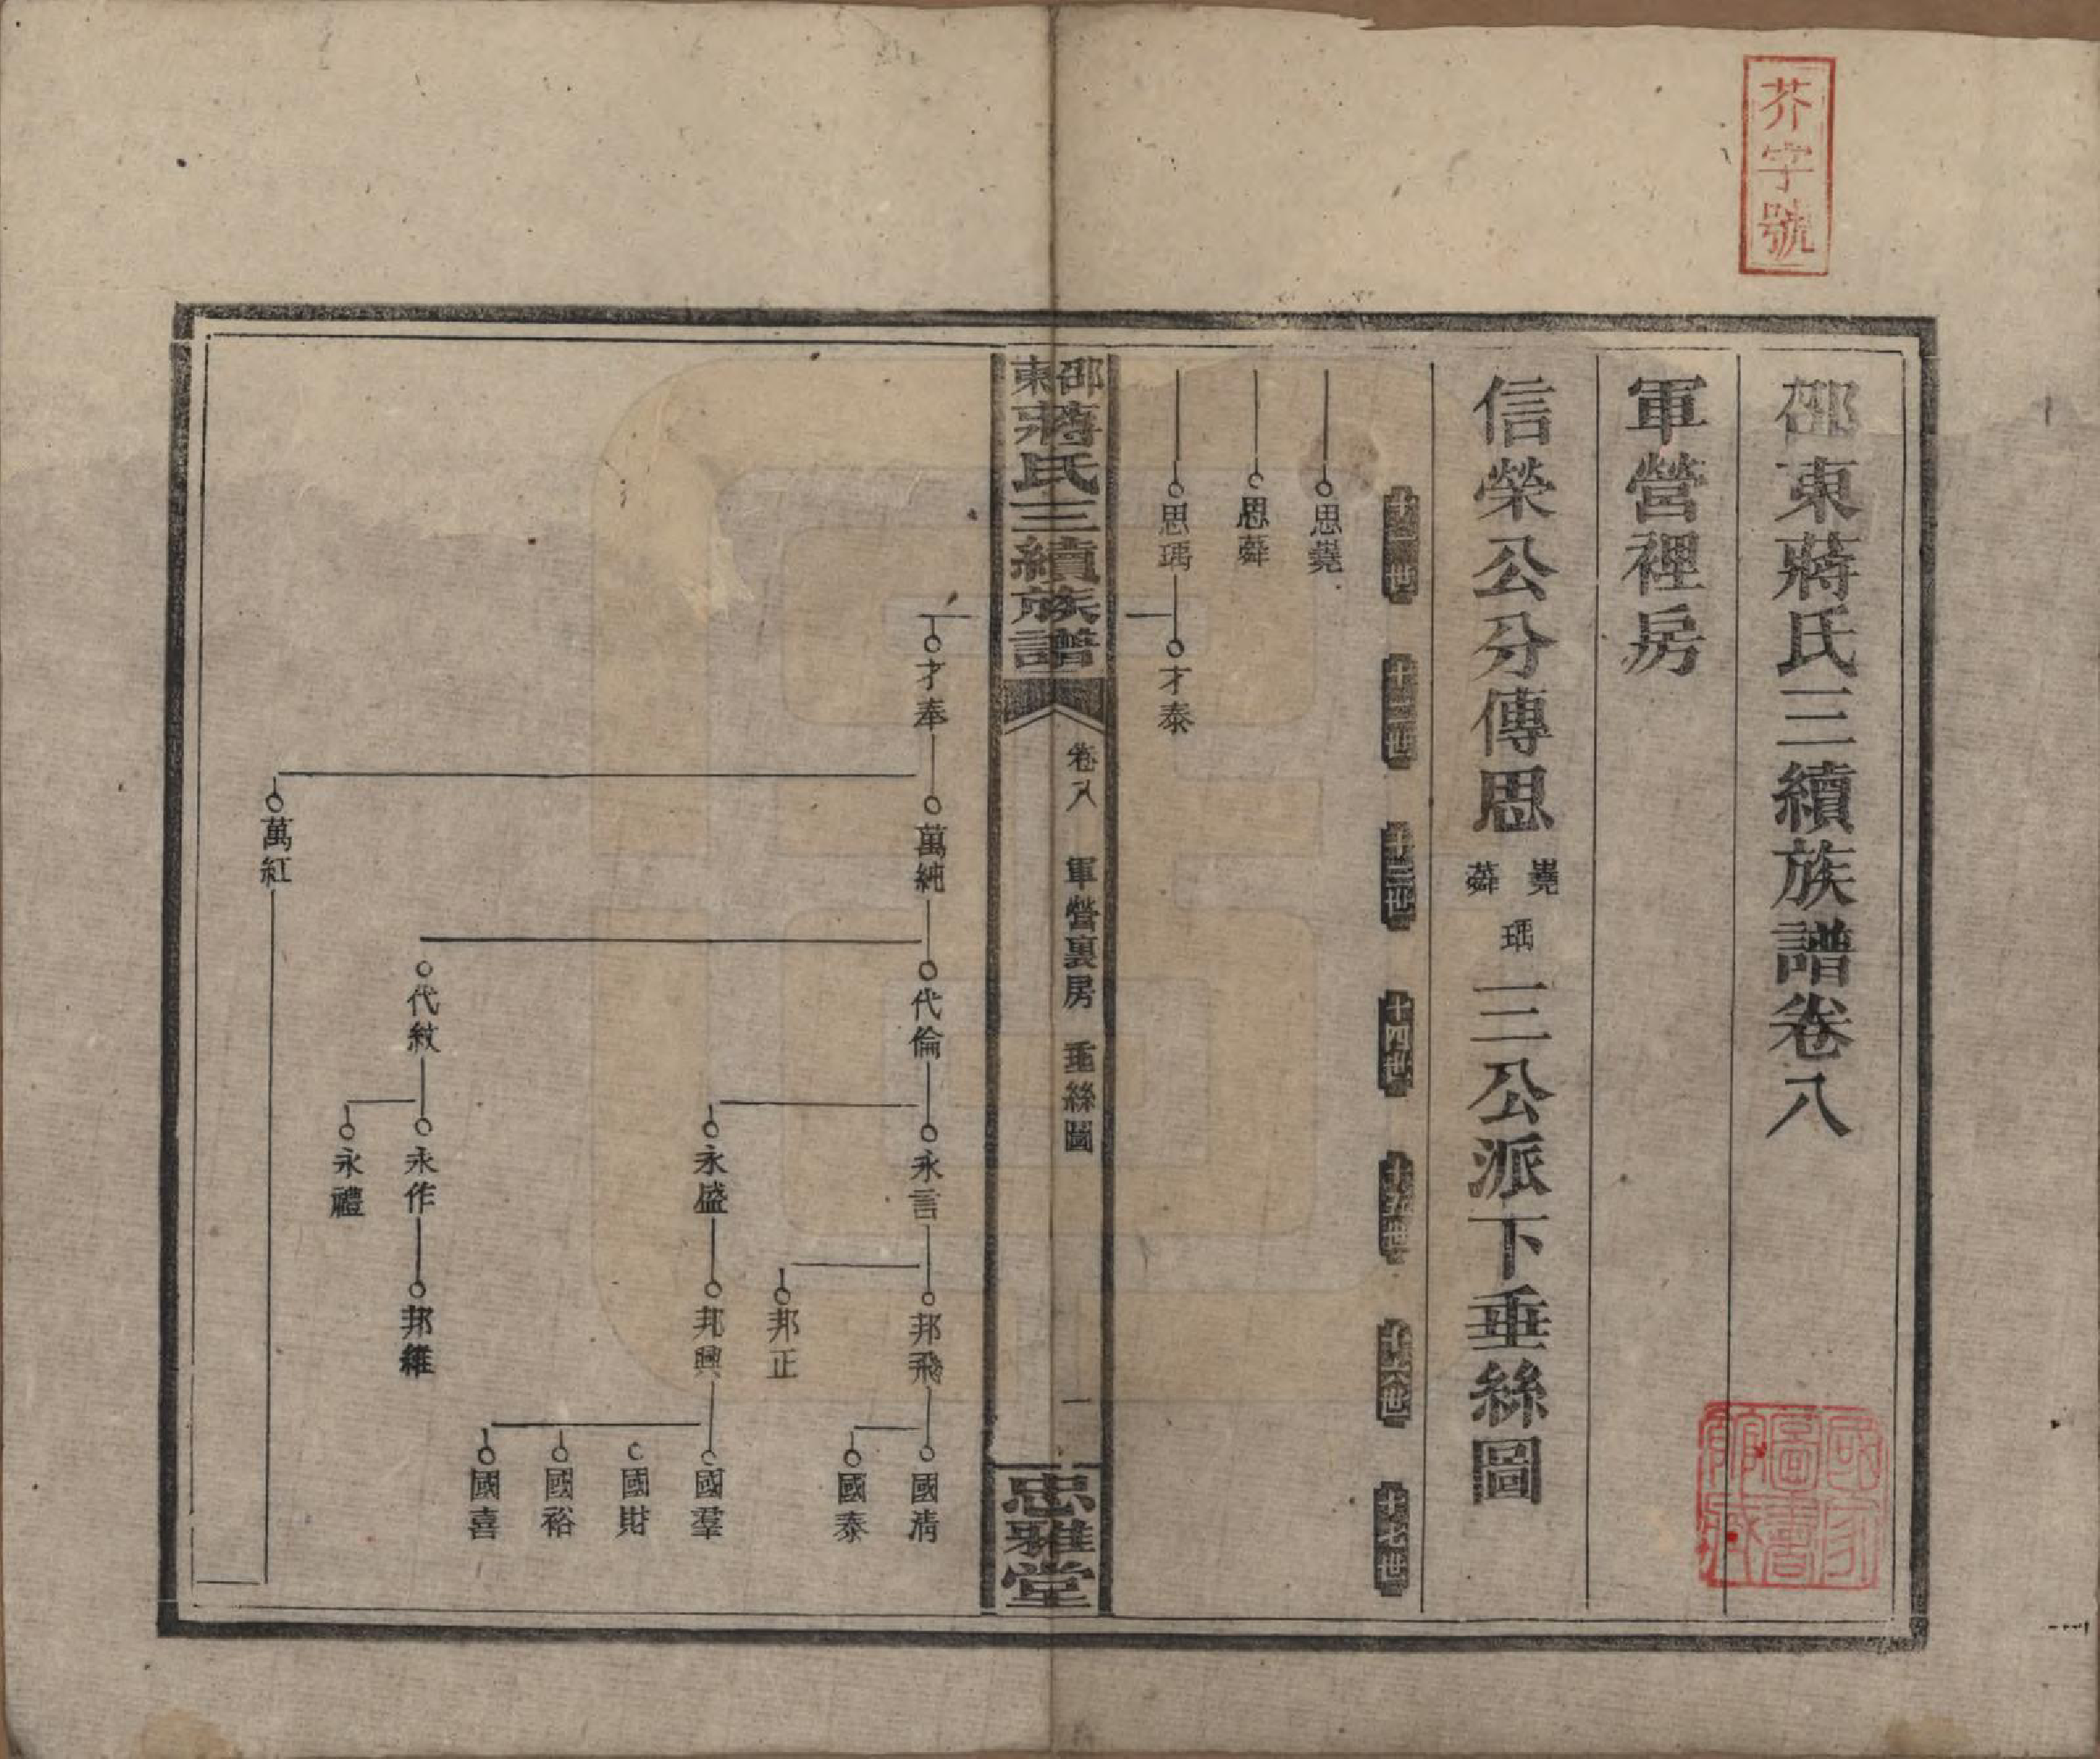 芥字號
邵東蔣氏三續族譜卷八
國家圖書館藏
軍營裡房
信榮公分傳思堯蕣瑀三公派下垂絲圖
十一世 十二世 十三世 十四世 十五世 十六世 十七世
思堯
思蕣
思瑀 才泰
邵東蔣氏三續族譜 卷八 軍營裏房 垂絲圖 一 忠雅堂
才奉 萬純 代倫 永言 邦飛 國清
國泰
邦正
永盛 邦興 國羣
國財
國裕
國喜
代紋 永作 邦維
永禮
萬紅